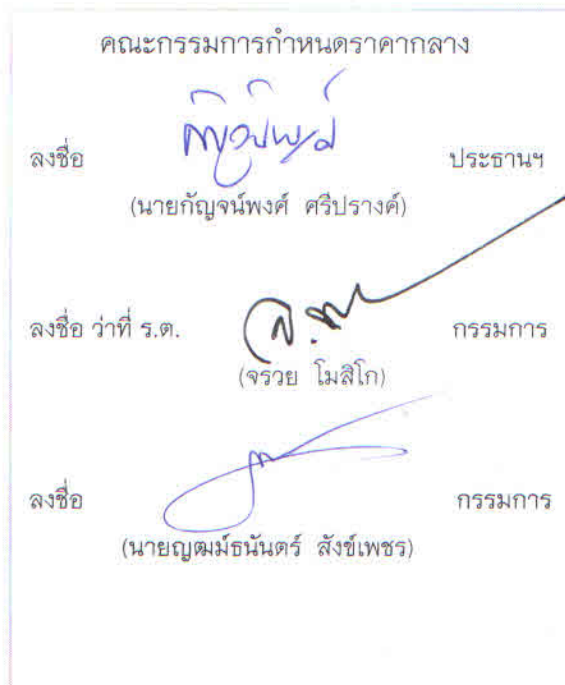 คณะกรรมการกำหนดราคากลาง
ลงชื่อ ประธานฯ
(นายกัญจน์พงศ์ ศรีปรางค์)
ลงชื่อ ว่าที่ ร.ต. กรรมการ
(จรวย โมสิโก)
ลงชื่อ กรรมการ
(นายญฒม์ธนันตร์ สังข์เพชร)